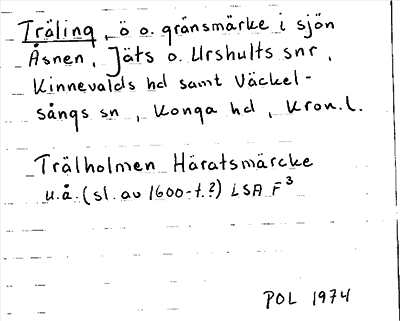 Träling, ö o. gränsmärke i sjön
Åsnen, Jäts o. Urshults snr,
Kinnevalds hd samt Väckel-
sångs sn, Konga hd, Kron.l.
Trälholmen Häratsmärcke
u.å. (sl. av 1600-t.?) LSA F3
POL 1974